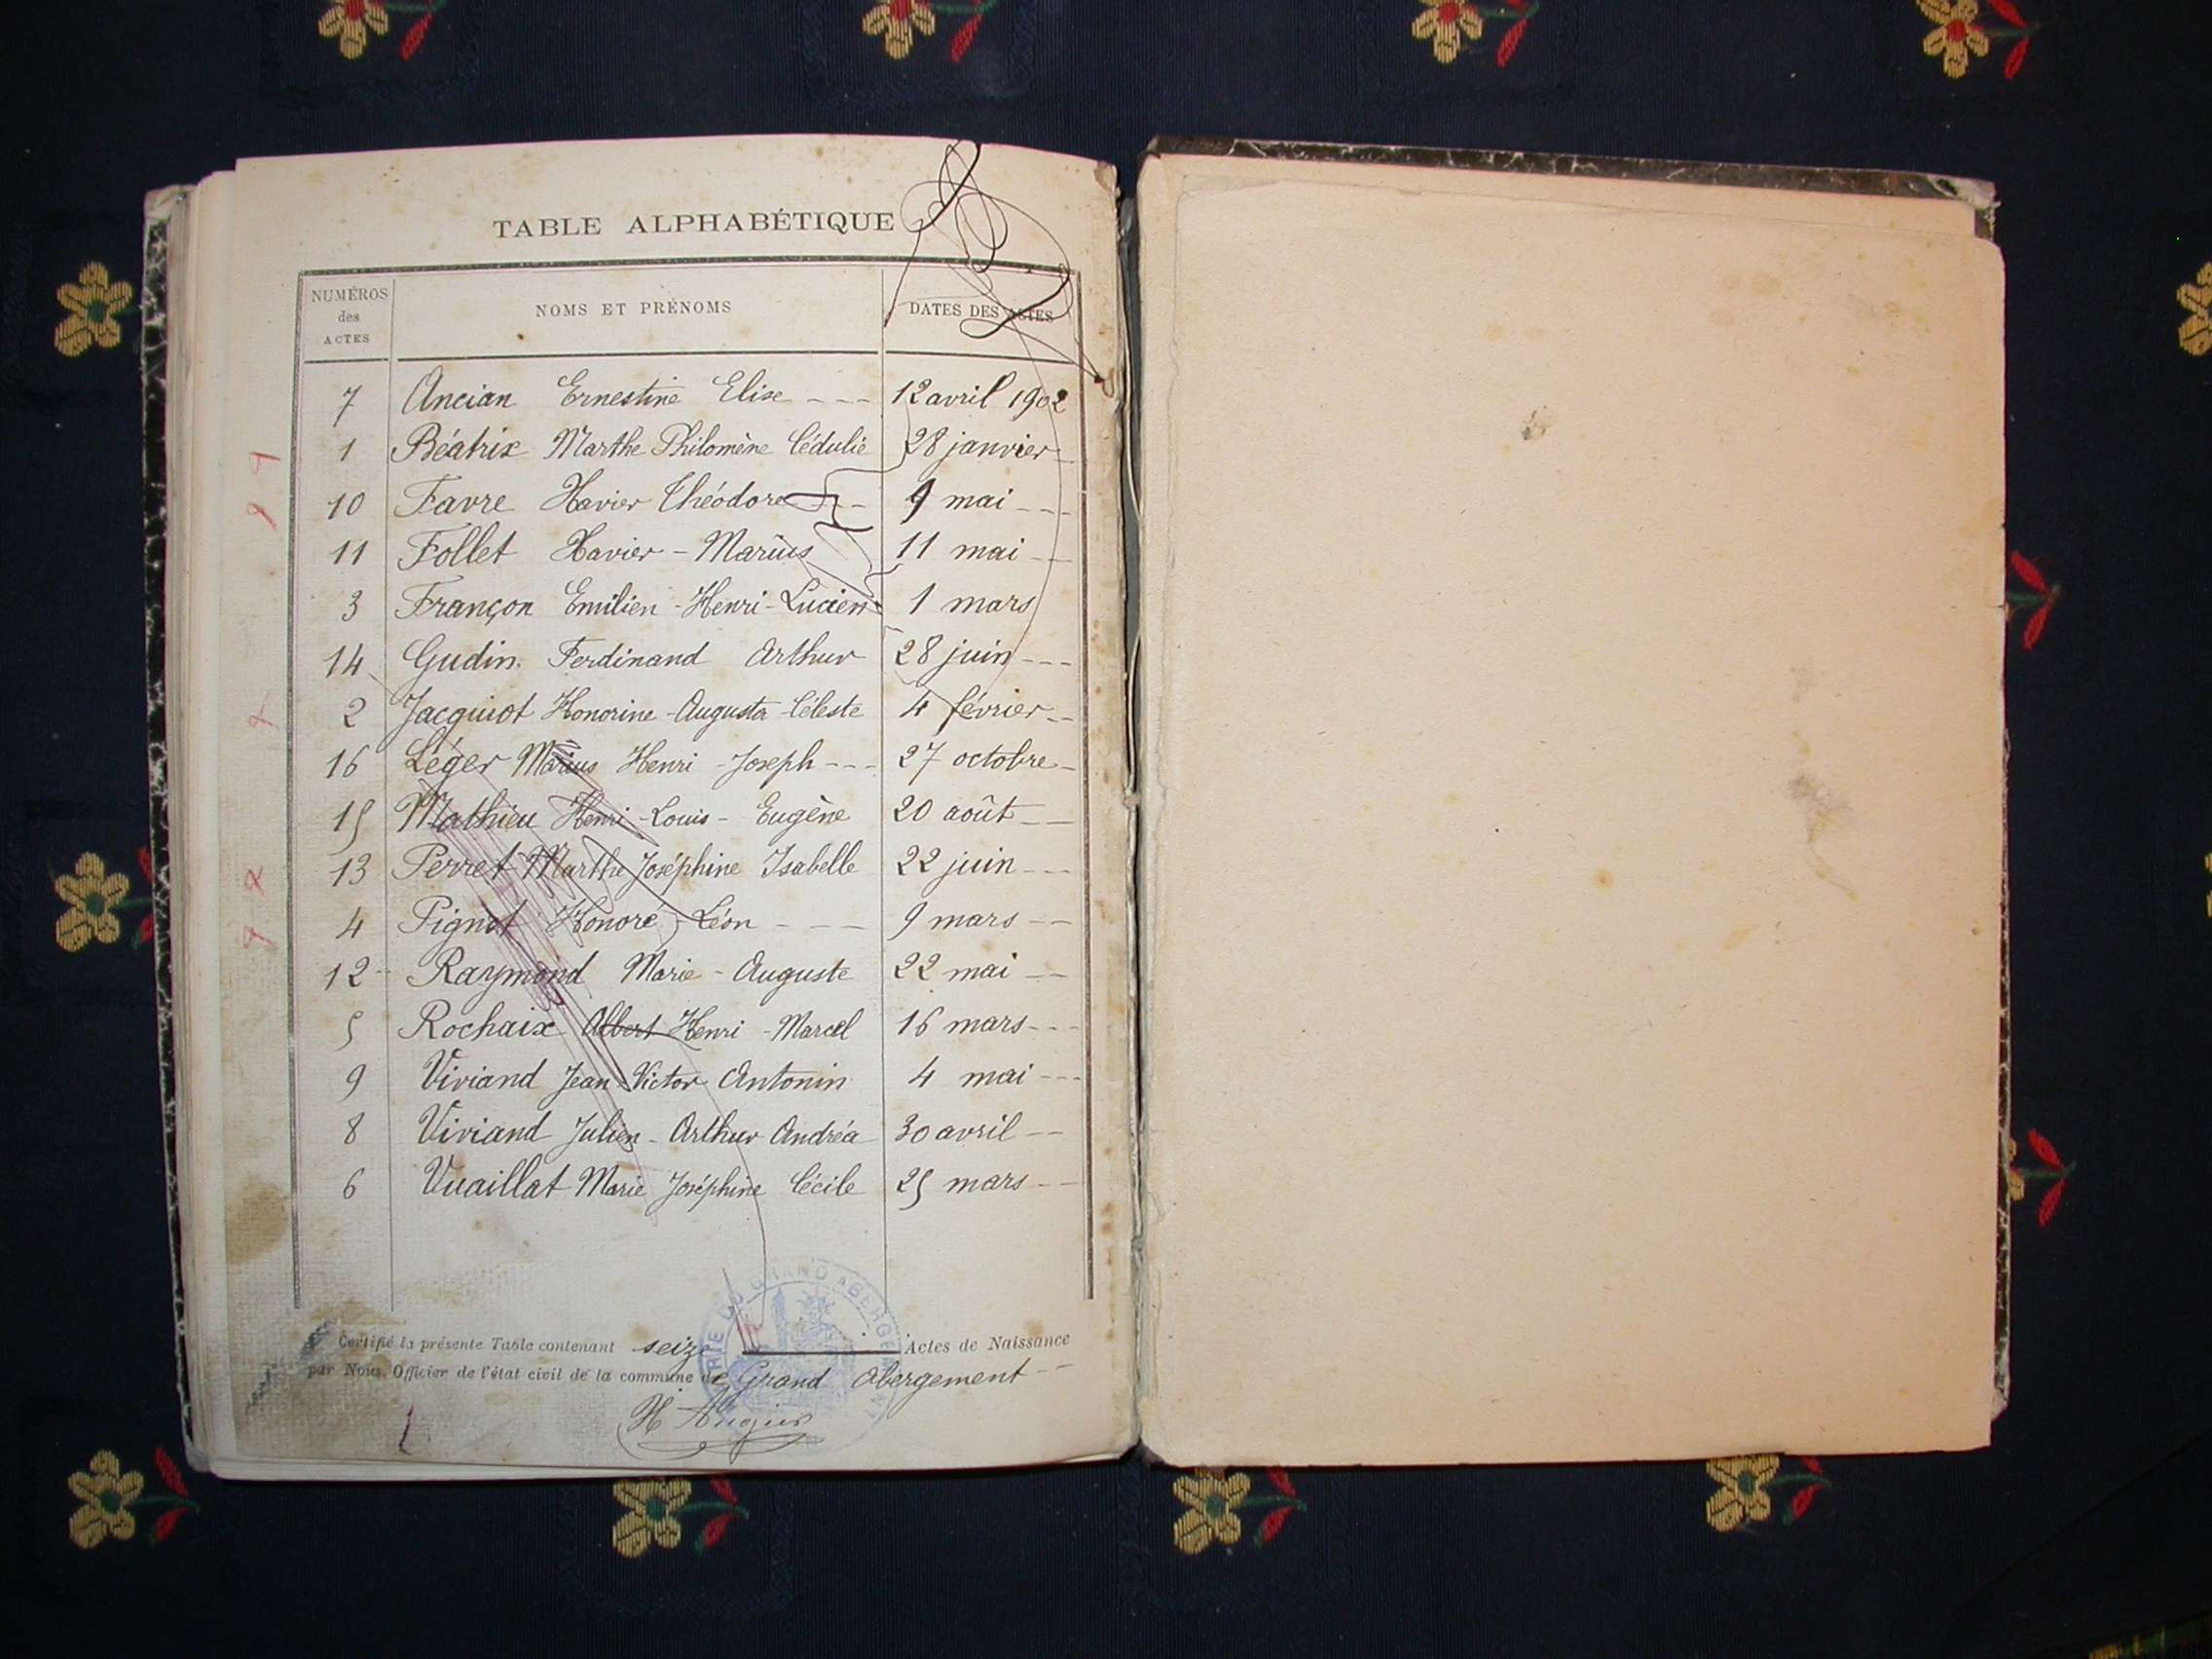 TABLE ALPHABÉTIQUE
NUMÉROS des ACTES NOMS ET PRÉNOMS DATES DES ACTES
7 Ancian Ernestine Elise --- 12 avril 1902
1 Béatrix Marthe Philomène Cédulie 28 janvier -
10 Favre Xavier Théodore -- 9 mai ---
11 Follet Xavier - Marius 11 mai --
3 Françon Emilien - Henri - Lucien 1 mars
14 Gudin Ferdinand Arthur 28 juin ---
2 Jacquiot Honorine - Augusta - Céleste 4 février --
16 Léger Marius Henri - Joseph --- 27 octobre -
15 Mathieu Henri - Louis - Eugène 20 août --
13 Perret Marthe Joséphine Isabelle 22 juin ---
4 Pignet Honoré - Léon --- 9 mars --
12 Raymond Marie - Auguste 22 mai --
5 Rochaix Albert Henri - Marcel 16 mars ---
9 Viviand Jean - Victor Antonin 4 mai ---
8 Viviand Julien - Arthur Andréa 30 avril --
6 Vuaillat Marie Joséphine Cécile 25 mars --
Certifié la présente Table contenant seize Actes de Naissance
par Nous, Officier de l'état civil de la commune de Grand Abergement --